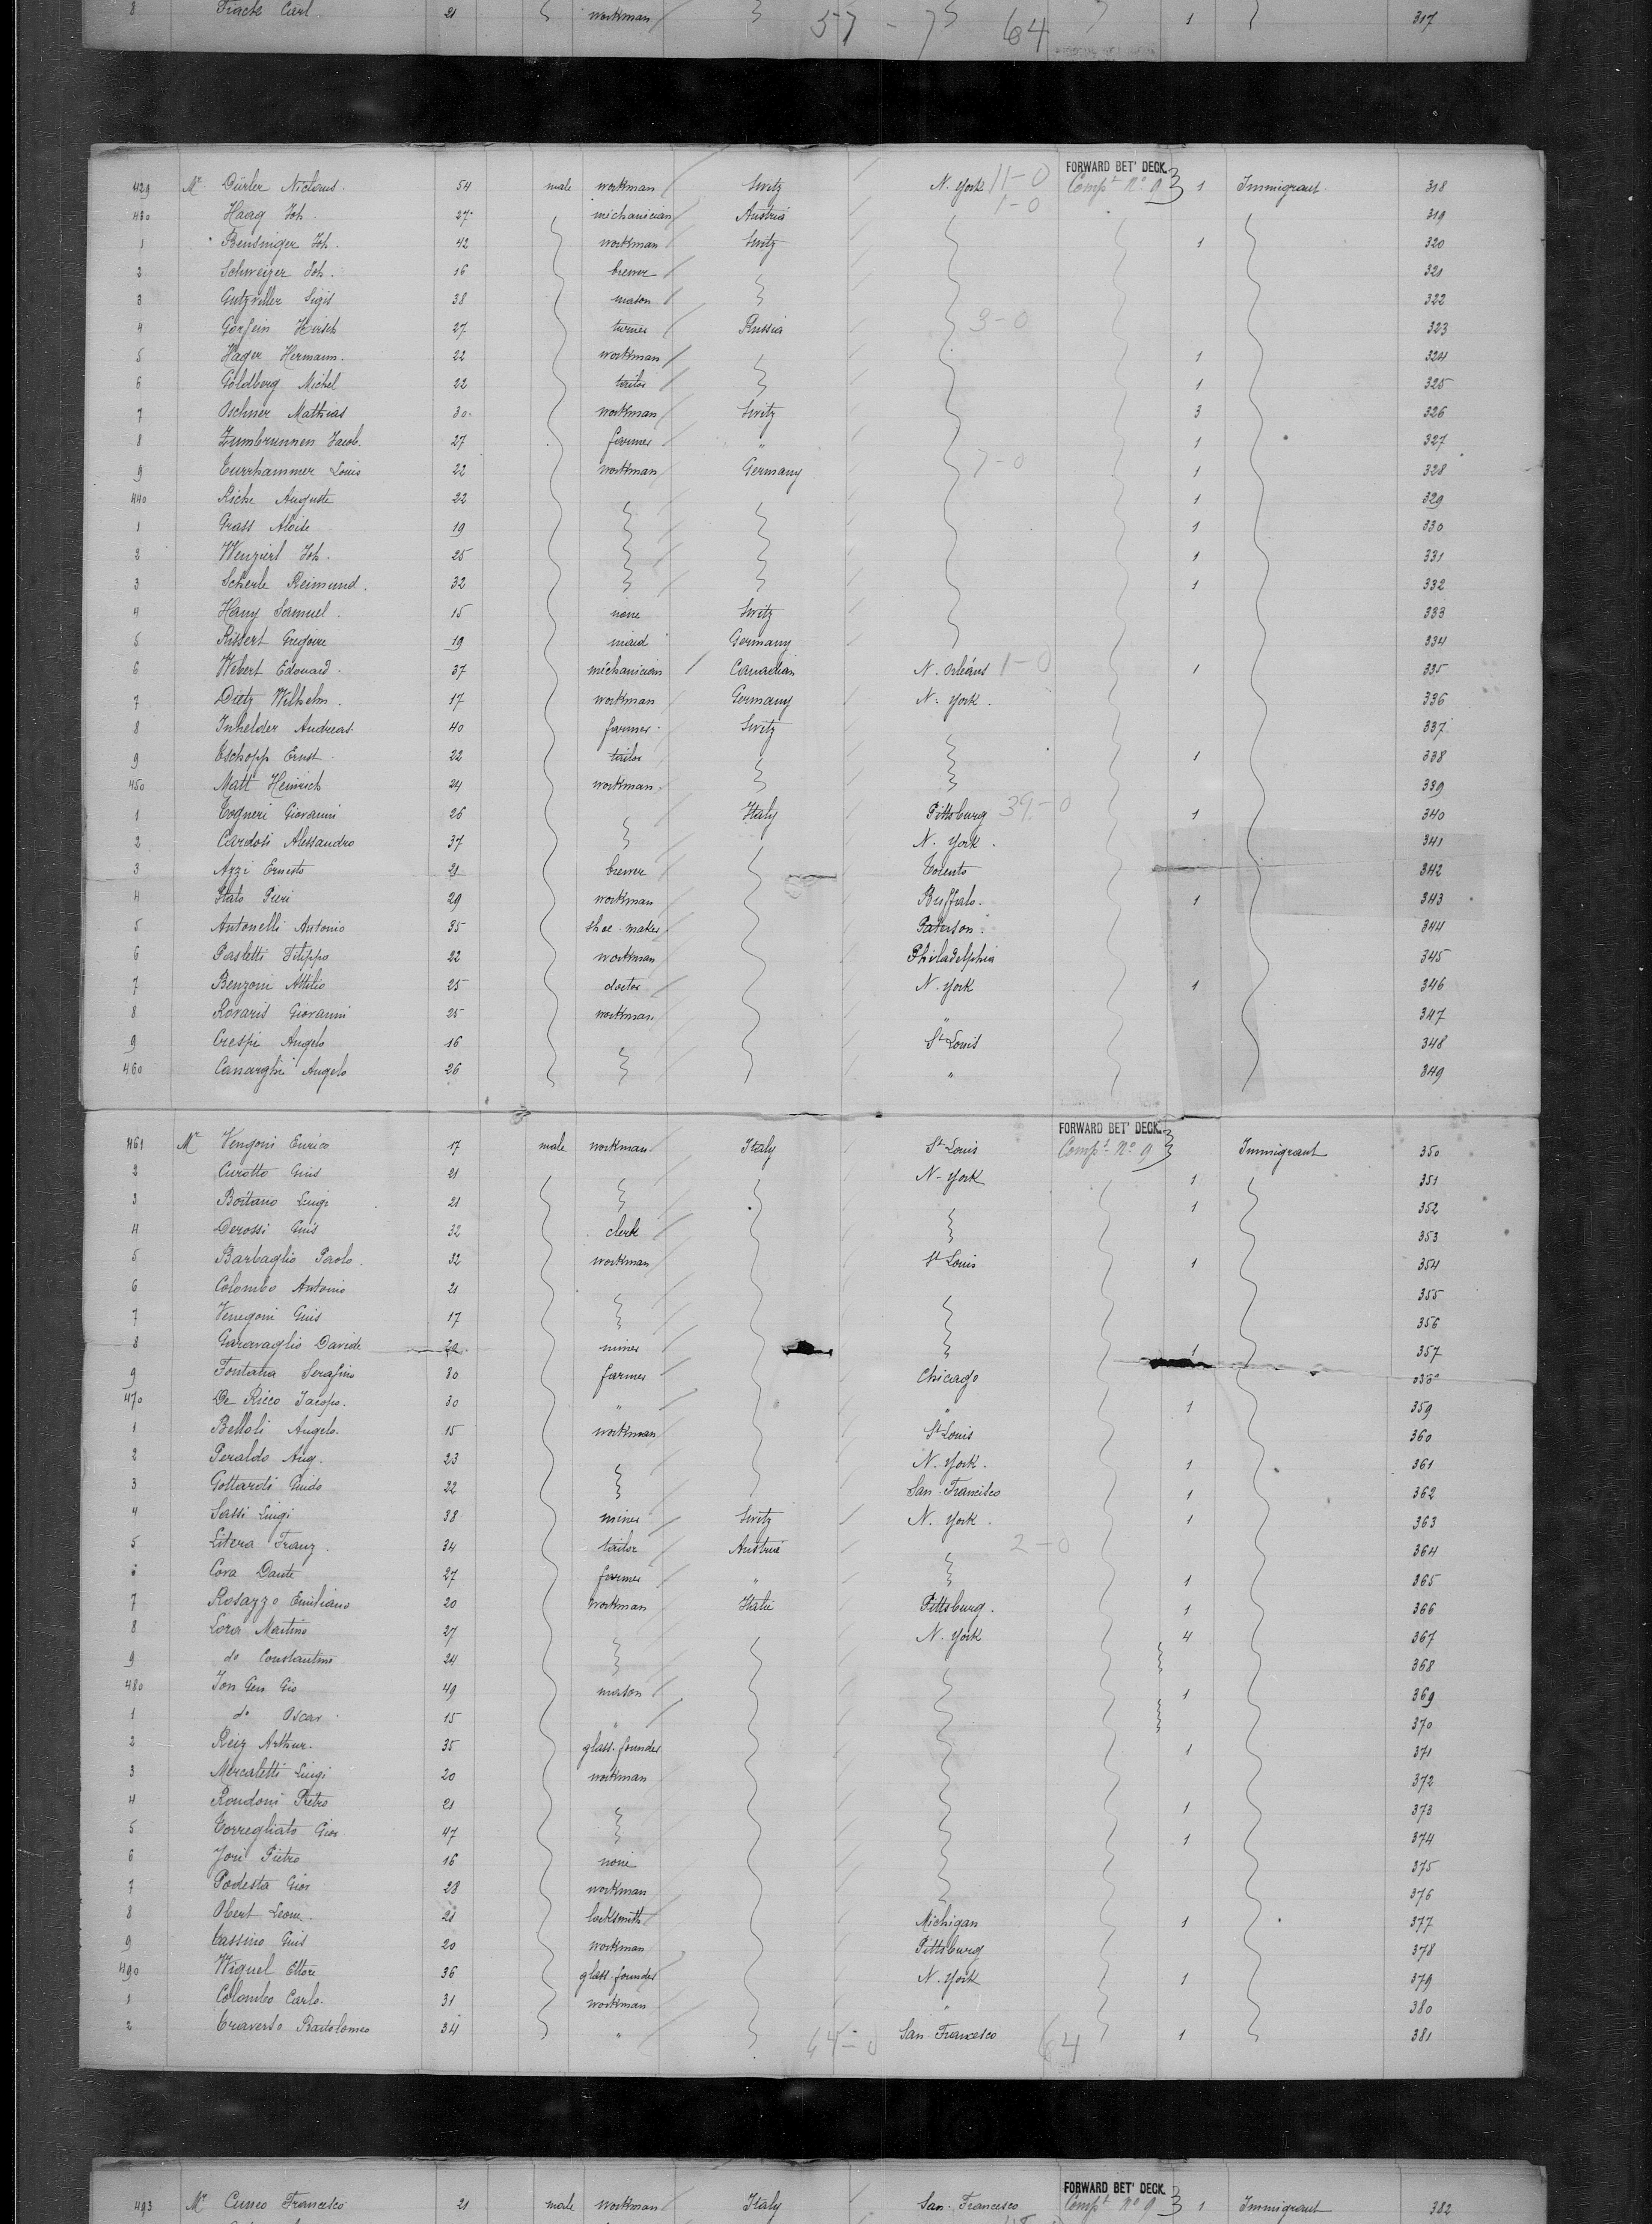 8 Frack Carl 21 workman 57-7 64 1 317
FORWARD BET' DECK.
429 Mr Dürler Niclaus. 54 male workman Switz N. York 11-0 Compt No 9 1 Immigrant 318
430 Haag Joh. 27 mechanician Austria 1-0 319
1 Rensinger Joh. 42 workman Switz 1 320
2 Schweizer Joh. 16 brewer 321
3 Gutzviller Sigis 38 mason 322
4 Gorfein Hirsch 27 turner Russia 3-0 323
5 Hager Hermann. 22 workman 1 324
6 Goldberg Michel 22 tailor 1 325
7 Oschner Mathias 30 workman Switz 3 326
8 Zumbrunnen Jacob. 27 farmer " 1 327
9 Turrhammer Louis 22 workman Germany 7-0 1 328
440 Riche Auguste 22 1 329
1 Grass Aloise 19 1 330
2 Wenzierl Joh. 25 1 331
3 Scherle Reimund. 32 1 332
4 Hany Samuel. 15 none Switz 333
5 Rissert Gregoire 19 maid Germany 334
6 Webert Edouard. 37 méchanician Canadian N. Orléans 1-0 1 335
7 Dietz Wilhelm. 17 workman Germany N. York. 336
8 Inhelder Andreas. 40 farmer Switz 337
9 Tschopp Ernst 22 tailor 1 338
450 Matt Heinrich 24 workman. 339
1 Togneri Giovanni 26 Italy Pittsburg 39-0 1 340
2 Cardosi Alessandro 37 N. York. 341
3 Arzi Ernesto 21 brewer Toronto 342
4 Stato Pieri 29 workman Buffalo. 1 343
5 Antonelli Antonio 35 shoe-maker Paterson. 344
6 Pasletti Filippo 22 workman Philadelphia 345
7 Benzoni Attilio 25 doctor N. York 1 346
8 Rovaris Giovanni 25 workman. " 347
9 Crespi Angelo 16 St Louis 348
460 Canarghi Angelo 26 " 349
FORWARD BET' DECK.
461 Mr Vengoni Enrico 17 male workman Italy St Louis Compt No 9 Immigrant 350
2 Curotto Guis 21 N-York 1 351
3 Boitano Luigi 21 1 352
4 Derossi Guis 32 clerk 353
5 Barbaglio Paolo. 32 workman St Louis 1 354
6 Colombo Antonio 21 355
7 Venegoni Guis 17 356
8 Garavaglio Davide miner 1 357
9 Fontana Serafino 30 farmer Chicago
470 De Ricco Jacopo. 30 " " 1 359
1 Belloli Angelo. 15 workman St Louis 360
2 Peraldo Aug. 23 N. York. 1 361
3 Gottardi Guido 22 San Francisco 1 362
4 Sassi Luigi 38 miner Switz N. York. 1 363
5 Litera Franz. 34 tailor Austria 2-0 364
6 Cova Dante 27 farmer " 1 365
7 Rosazzo Emiliano 20 workman Italie Pittsburg. 1 366
8 Lora Martino 27 N. York 4 367
9 do Constantino 24 368
480 Jon Gen Gio 49 mason 1 369
1 do Oscar 15 " 370
2 Reiz Arthur. 35 glass-founder 1 371
3 Mercaletti Luigi 20 workman 372
4 Rondoni Pietro 21 1 373
5 Torregliato Giov 47 1 374
6 Jori Pietro 16 none 375
7 Podesta Giov 28 workman 376
8 Obert Leon. 21 locksmith Michigan 1 377
9 Cassino Guis 20 workman Pittsburg 378
490 Wiquel Ettore 36 glass-founder N. York 1 379
1 Colombo Carlo. 31 workman " 380
2 Traverso Bartolomeo 34 " 64-0 San Francesco 64 1 381
FORWARD BET' DECK.
493 Mr Cuneo Francesco 21 male workman Italy San Francesco Compt No 9 1 Immigrant 382